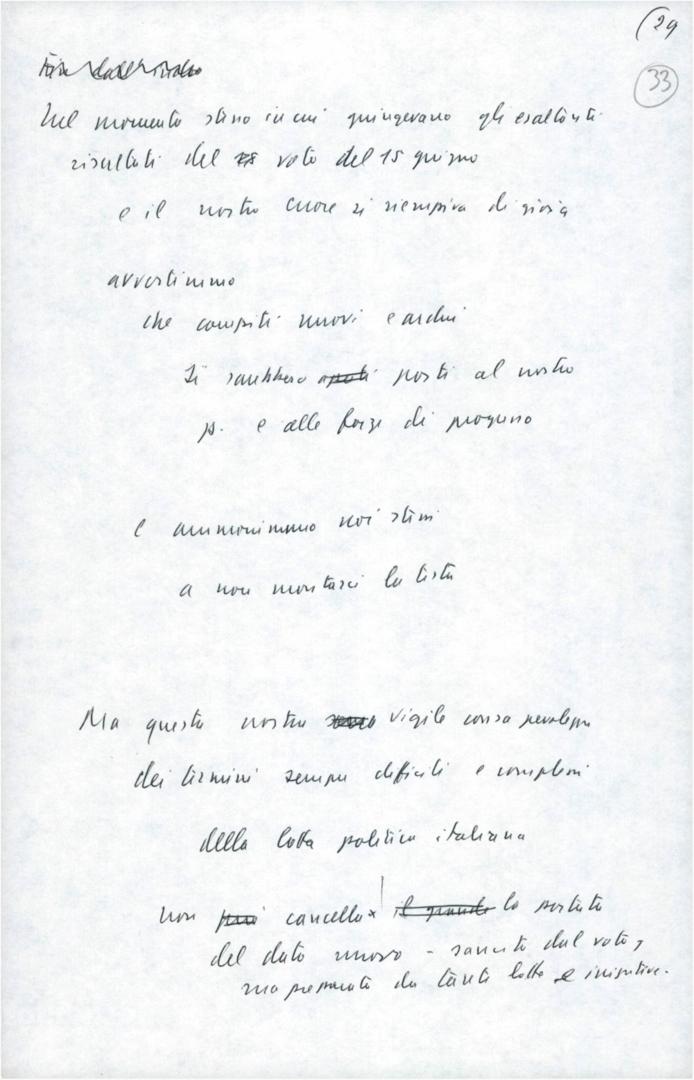 (29
33
Nel momento stesso in cui giungevano gli esaltanti
risultati del voto del 15 giugno
e il nostro cuore si riempiva di gioia
avvertimmo
che compiti nuovi e ardui
si sarebbero posti al nostro
p. e alle forze di progresso
e ammonimmo noi stessi
a non montarci la testa
Ma questa nostra vigile consapevolezza
dei termini sempre difficili e complessi
della lotta politica italiana
non cancella la portata
del dato nuovo - sancito dal voto,
ma preparato da tante lotte e iniziative.